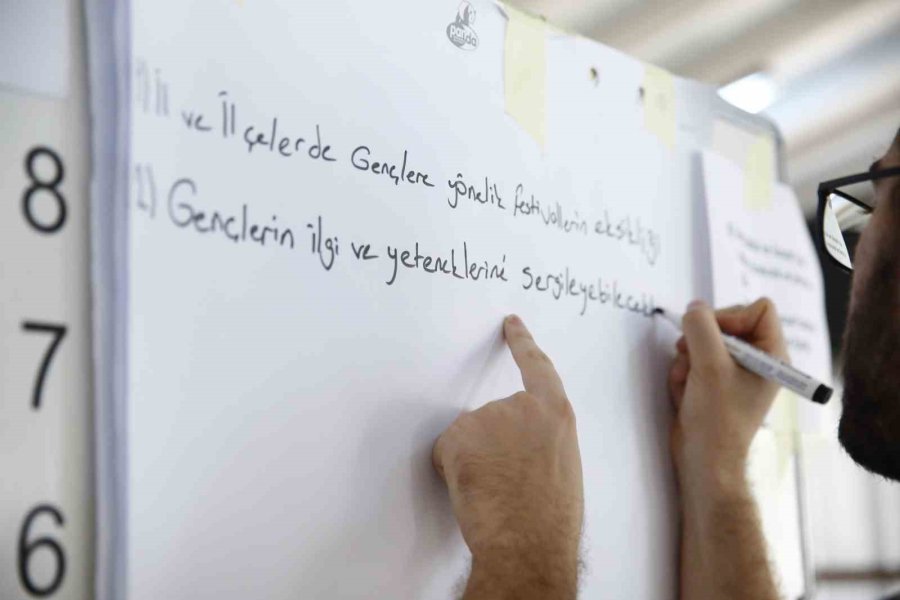 panda
1) İl ve İlçelerde Gençlere yönelik festivallerin eksikliği
2) Gençlerin ilgi ve yeteneklerini sergileyebilecek
8
7
6